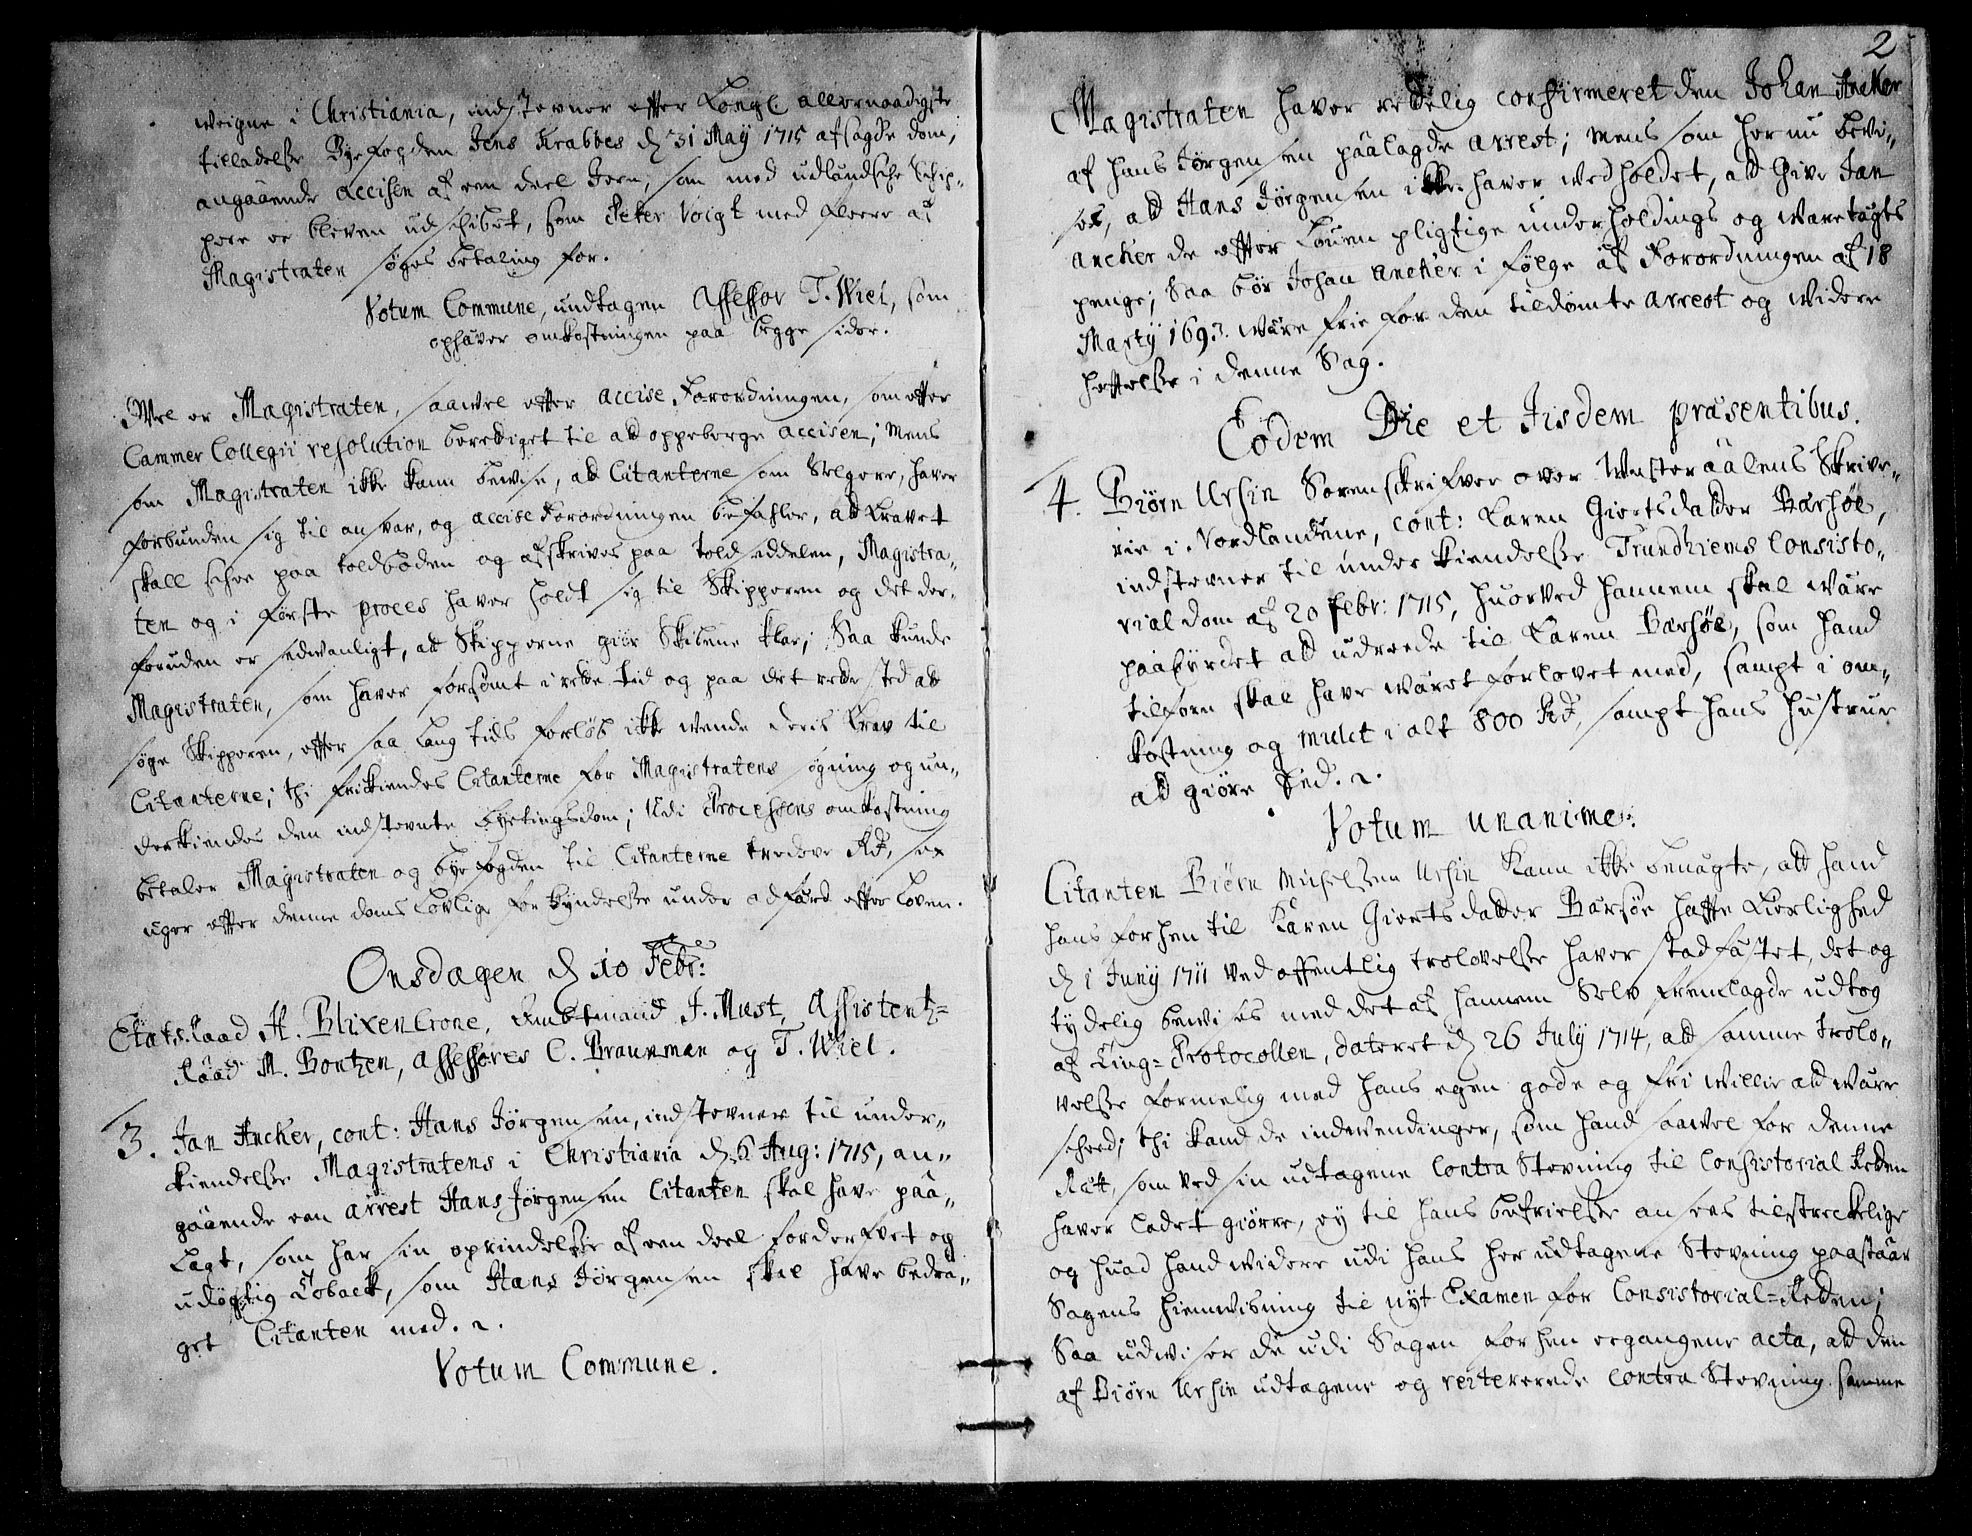 weigne i Christiania, indstevner efter Kongl. allernaadigste
tilladelse Byefogden Jens Krabbes d. 31 Maÿ 1715 afsagde dom,
angaaende accisen af een deel Jern, som med udlandsche Schip-
pere er bleven udschibet, som Peter Voigt med fleere af
Magistraten søges betaling for.
Votum Commune, undtagen Assessor T. Wiel, som
ophæver omkostningen paa begge sider.
Vel er Magistraten, saavel efter accise Forordningen, som efter
Cammer Collegii resolution berettiget til at oppeberge accisen; Mens
som Magistraten ikke kann bewise, at Citanterne som Selgere, haver
forbunden sig til ansvar, og accise Forordningen befahler, at Kravet
skall schee paa toldboden og afskrives paa toldseddelen, Magistra-
ten og i første proces haver holdt sig til Skipperen og det der-
foruden er sedwanligt, at Skipperne giør Skibene klar; Saa kunde
Magistraten, som haver forsømt i rette tid og paa det rette sted at
søge Skipperen, efter saa lang tids forløb ikke wende deris Krav til
Citanterne; thi frikiendes Citanterne for Magistratens søgning og un-
derkiendes den indstevnte Byetingsdom; Udi Processens omkostning
betaler Magistraten og byefogden til Citanterne tredeve Rd, sex
uger efter denne doms lovlige forkyndelse under adfærd efter loven.
Onsdagen d. 10 Febr:
Etats-Raad A. Blixencrone, Ambtmand J. Must, Assistentz-
Raad M. Bontzen, Assessores C. Braunman og T. Wiel.
3. Jan Ancker, cont: Hans Jörgensen, indstevner til under-
kiendelse Magistratens i Christiania d. 6 Aug: 1715, an-
gaaende een arrest Hans Jörgensen Citanten skal have paa-
lagt, som har sin oprindelse af een deel forderfvet og
udögtig Toback, som Hans Jörgensen skal have bedra-
get Citanten med. r.
Votum Commune.
2
Magistraten haver rettelig confirmeret den Johan Ancker
af Hans Jörgensen paalagde arrest; Mens som her nu bevi-
ses, at Hans Jörgensen ikke haver vedholdet, at give Jan
Ancker de efter Louen pligtige underholdings og waretægts
penge; Saa bör Johan Ancker i følge af Forordningen af 18
Martÿ 1693. wære frie for den tildømte arrest og widere
heftelse i denne Sag.
Eodem Die et Iisdem præsentibus.
4. Biørn Ursin Sorenskrifver over Westeraalens Skrive-
rie i Nordlandene, cont: Karen Giertsdatter Barhöe,
indstevner til underkiendelse Trundhiems Consisto-
rial dom af 20 febr: 1715, huorved hannem skal wære
paabyrdet at udreede til Karen Barhöe, som hand
tilforn skal have wæret forlovet med, sampt i om-
kostning og mulct i alt 800 Rd, sampt hans Hustrue
at giöre Eed. r.
Votum unanime:
Citanten Biørn Michelsen Ursin kann ikke benægte, at hand
hans forhen til Karen Giertsdatter Barsöe hafte kierlighed
d. 1 Junÿ 1711 ved offentlig trolovelse haver stadfæstet, det og
tydelig bewises med det af hannem Selv fremlagde udtog
af Ting-Protocollen, dateret d. 26 Julÿ 1714, at samme trolo-
velse formelig med hans egen gode og fri willie at wære
scheed; thi kand de indwendinger, som hand saavel for denne
Rett, som ved sin udtagene Contra Stevning til Consistorial Retten
haver ladet giöre, ey til hans befrielse ansees tilstreckelige
og huad hand widere udi hans her udtagene Stevning paastaar
Sagens hiemvisning til nyt Examen for Consistorial-Retten;
Saa udwiser de udi Sagen forhen ergangene acta, at den
af Biørn Ursin udtagene og reitererede Contra Stevning samme